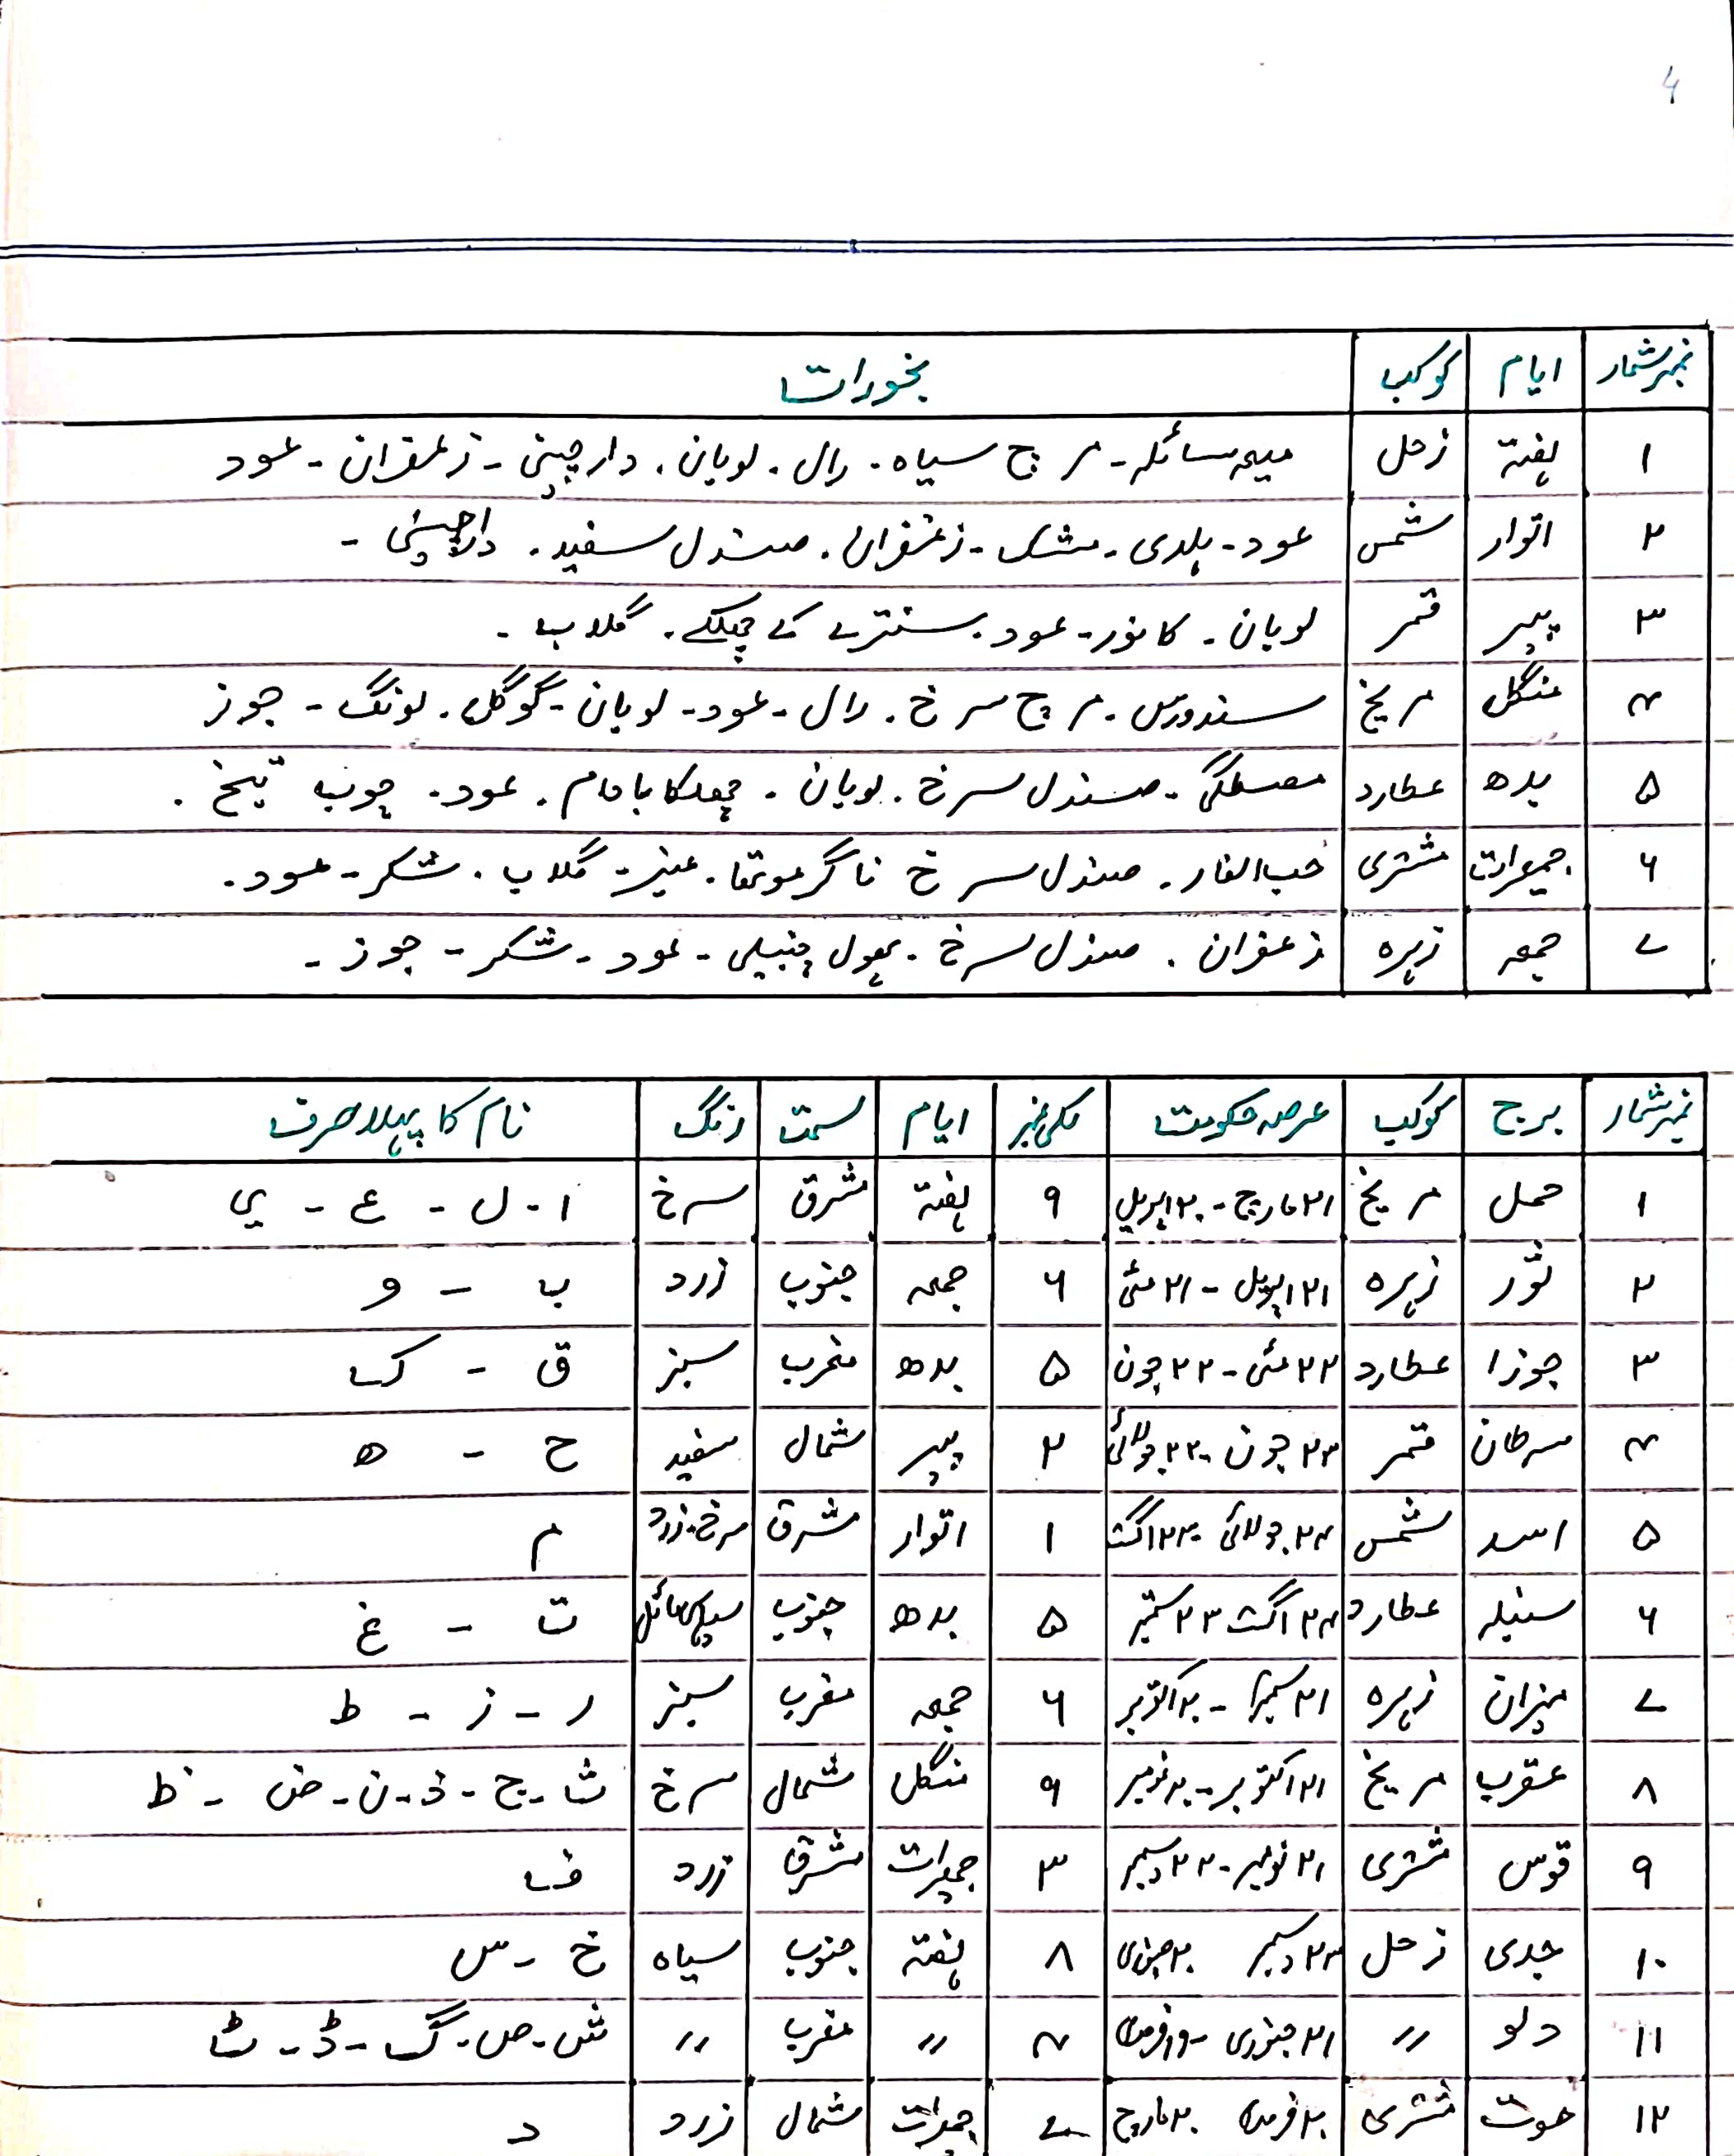 4
نمبرشمار ایام کوکب بخورات
۱ ہفتہ زحل میعہ سائلہ - مرچ سیاہ - رال - لوبان - دارچینی - زعفران - عود
۲ اتوار شمس عود - ہلدی - مشک - زعفران - صندل سفید - دارچینی -
۳ پیر قمر لوبان - کافور - عود - سنترے کے چھلکے - گلاب -
۴ منگل مریخ سندورس - مرچ سرخ - رال - عود - لوبان - گوگل - لونگ - جوز
۵ بدھ عطارد مصطگی - صندل سرخ - لوبان - چھلکا بادام - عود - چوب تیخ -
۶ جمعرات مشتری حب الغار - صندل سرخ ناگرموتھا - عنبر - گلاب - شکر - عود -
۷ جمعہ زہرہ زعفران - صندل سرخ - پھول چنبیلی - عود - شکر - جوز -
نمبرشمار برج کوکب عرصہ حکومت لکی نمبر ایام سمت رنگ نام کا پہلا حرف
۱ حمل مریخ ۲۱ مارچ - ۲۰ اپریل ۹ ہفتہ مشرق سرخ ا - ل - ع - ی
۲ ثور زہرہ ۲۱ اپریل - ۲۱ مئی ۶ جمعہ جنوب زرد ب - و
۳ جوزا عطارد ۲۲ مئی - ۲۲ جون ۵ بدھ مغرب سبز ق - ک
۴ سرطان قمر ۲۳ جون - ۲۳ جولائی ۲ پیر شمال سفید ح - ھ
۵ اسد شمس ۲۴ جولائی - ۲۳ اگست ۱ اتوار مشرق سرخ - زرد م
۶ سنبلہ عطارد ۲۴ اگست ۲۳ ستمبر ۵ بدھ جنوب سیاہی مائل ت - غ
۷ میزان زہرہ ۲۱ ستمبر - ۲۰ اکتوبر ۶ جمعہ مغرب سبز ر - ز - ط
۸ عقرب مریخ ۲۱ اکتوبر - ۲۰ نومبر ۹ منگل شمال سرخ ث - ج - ذ - ن - ض - ظ
۹ قوس مشتری ۲۱ نومبر - ۲۲ دسمبر ۳ جمعرات مشرق زرد ف
۱۰ جدی زحل ۲۳ دسمبر ۲۰ جنوری ۸ ہفتہ جنوب سیاہ خ - س
۱۱ دلو // ۲۱ جنوری - ۱۹ فروری ۴ // مغرب // ش - ص - گ - ڈ - ٹ
۱۲ حوت مشتری ۲۰ فروری ۲۰ مارچ ۷ جمعرات شمال زرد د